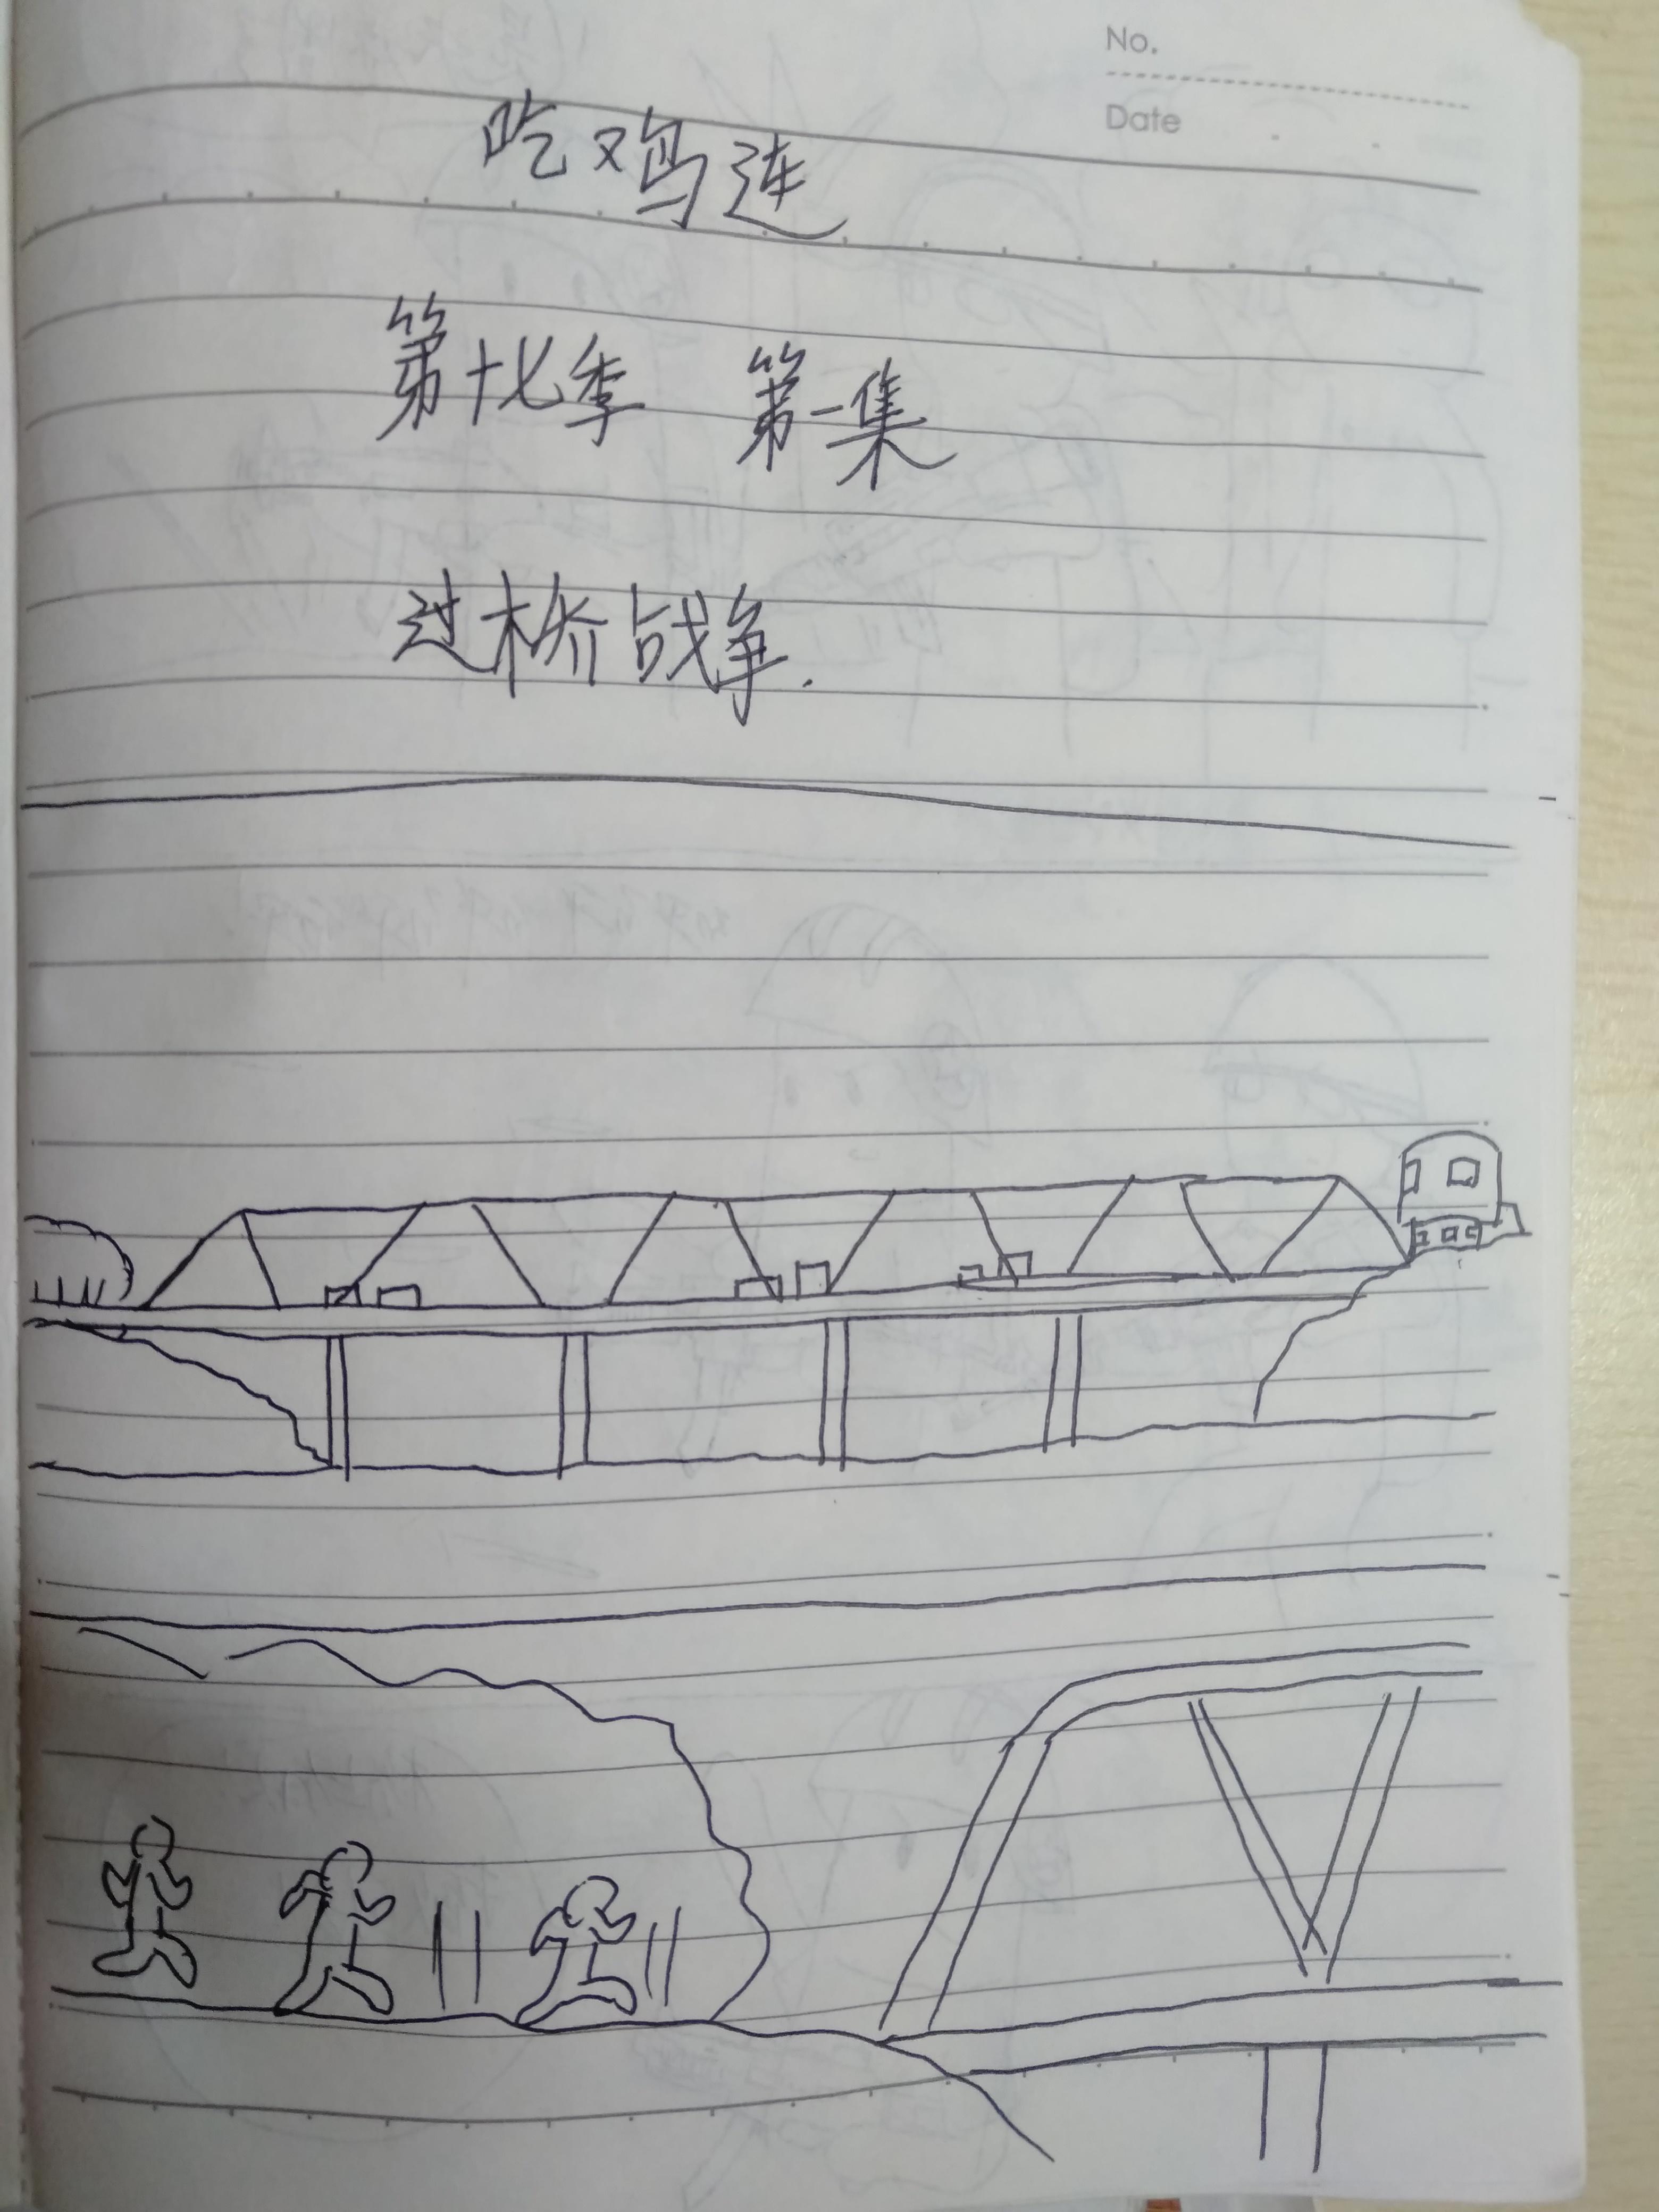 No.
Date
吃鸡连
第十七季 第一集
过桥战争.